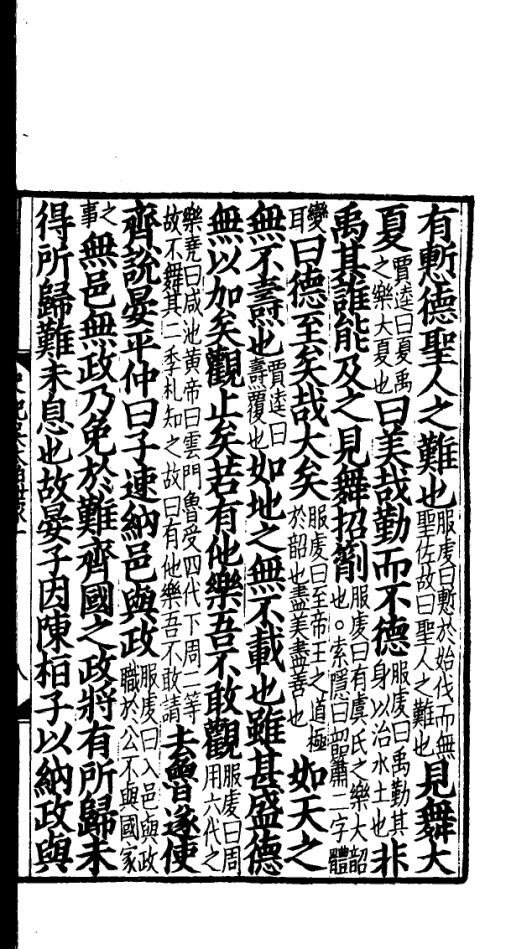 有慙德聖人之難也服虔曰慙於始伐而無聖佐故曰聖人之難也見舞大
夏賈逵曰夏禹之樂大夏也曰美哉勤而不德服虔曰禹勤其身以治水土也非
禹其誰能及之見舞招箾服虔曰有虞氏之樂大韶也○索隱曰韶蕭二字體
變耳曰德至矣哉大矣服虔曰至帝王之道極於韶也盡美盡善也如天之
無不燾也賈逵曰燾覆也如地之無不載也雖甚盛德
無以加矣觀止矣若有他樂吾不敢觀服虔曰周用六代之
樂堯曰咸池黃帝曰雲門魯受四代下周二等故不舞其二季札知之故曰有他樂吾不敢請去魯遂使
齊說晏平仲曰子速納邑與政服虔曰入邑與政職於公不與國家
之事無邑無政乃免於難齊國之政將有所歸未
得所歸難未息也故晏子因陳桓子以納政與